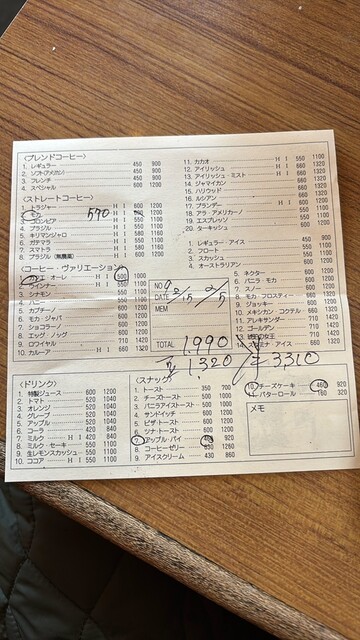 〈ブレンドコーヒー〉
1. レギュラー 450 900
2. ソフト(アメリカン) 450 900
3. フレンチ 450 900
4. スペシャル 600 1200
〈ストレートコーヒー〉
1. トラジャー H I 600 1200
2. モカ 570 H I
3. コロンビア H I 550 1100
4. ブラジル H I 550 1100
5. キリマンジャロ H I
6. ガテマラ H I 550 1100
7. スマトラ H I
8. ブラジル (無農薬) H I 600 1200
〈コーヒー・ヴァリエーション〉
1. カフェ・オーレ H I 500 1000
2. ウィンナー H I 550 1100
3. シナモン 550 1100
4. ハニー
5. カプチーノ 600 1200
6. モカ・ジャバ 600 1200
7. ショコラーノ 600 1200
8. エッグ・ノッグ 600 1200
9. ロワイヤル 710 1420
10. カルーア H I 660 1320
11. カカオ H I 550 1100
12. アイリッシュ 660 1320
13. アイリッシュ・ミスト H I 660 1320
14. ジャマイカン 660 1320
15. ハリウッド 660 1320
16. ルシアン 660 1320
17. ブランデー H I 600 1200
18. アラ・アメリカーノ 550 1100
19. エスプレッソ 550 1100
20. ターキッシュ 600 1200
1. レギュラー・アイス 450 900
2. フロート 600 1200
3. スカッシュ 550 1100
4. オーストラリアン 600 1200
5. ネクター 600 1200
6. バニラ・モカ 600 1200
7. スノー 600 1200
8. モカ・フロスティー 600 1200
9. ジョッキー 600 1200
10. メキシカン・コクテル 660 1320
11. アレキサンダー 710 1420
12. ゴールデン 660 1320
13. 710 1420
アイス 660 1320
NO
MEM
TOTAL 1,990
1320
3,310
〈ドリンク〉
1. 特製ジュース 600 1200
2. トマト 520 1040
3. オレンジ 520 1040
4. グレープ 520 1040
5. アップル 520 1040
6. コーラ 420 840
7. ミルク H I 420 840
8. ミルク・セーキ 550 1100
9. 生レモンスカッシュ 550 1100
10. ココア H I 550 1100
〈スナック〉
1. トースト 350 700
2. チーズトースト 500 1000
3. バニラアイストースト 500 1000
4. サンドイッチ 600 1200
5. ピザ・トースト 600 1200
6. ツナ・トースト 600 1200
7. アップル・パイ 460 920
8. コーヒーゼリー 630 1260
9. アイスクリーム 430 860
10. チーズケーキ 460 920
11. バターロール 160 320
メモ